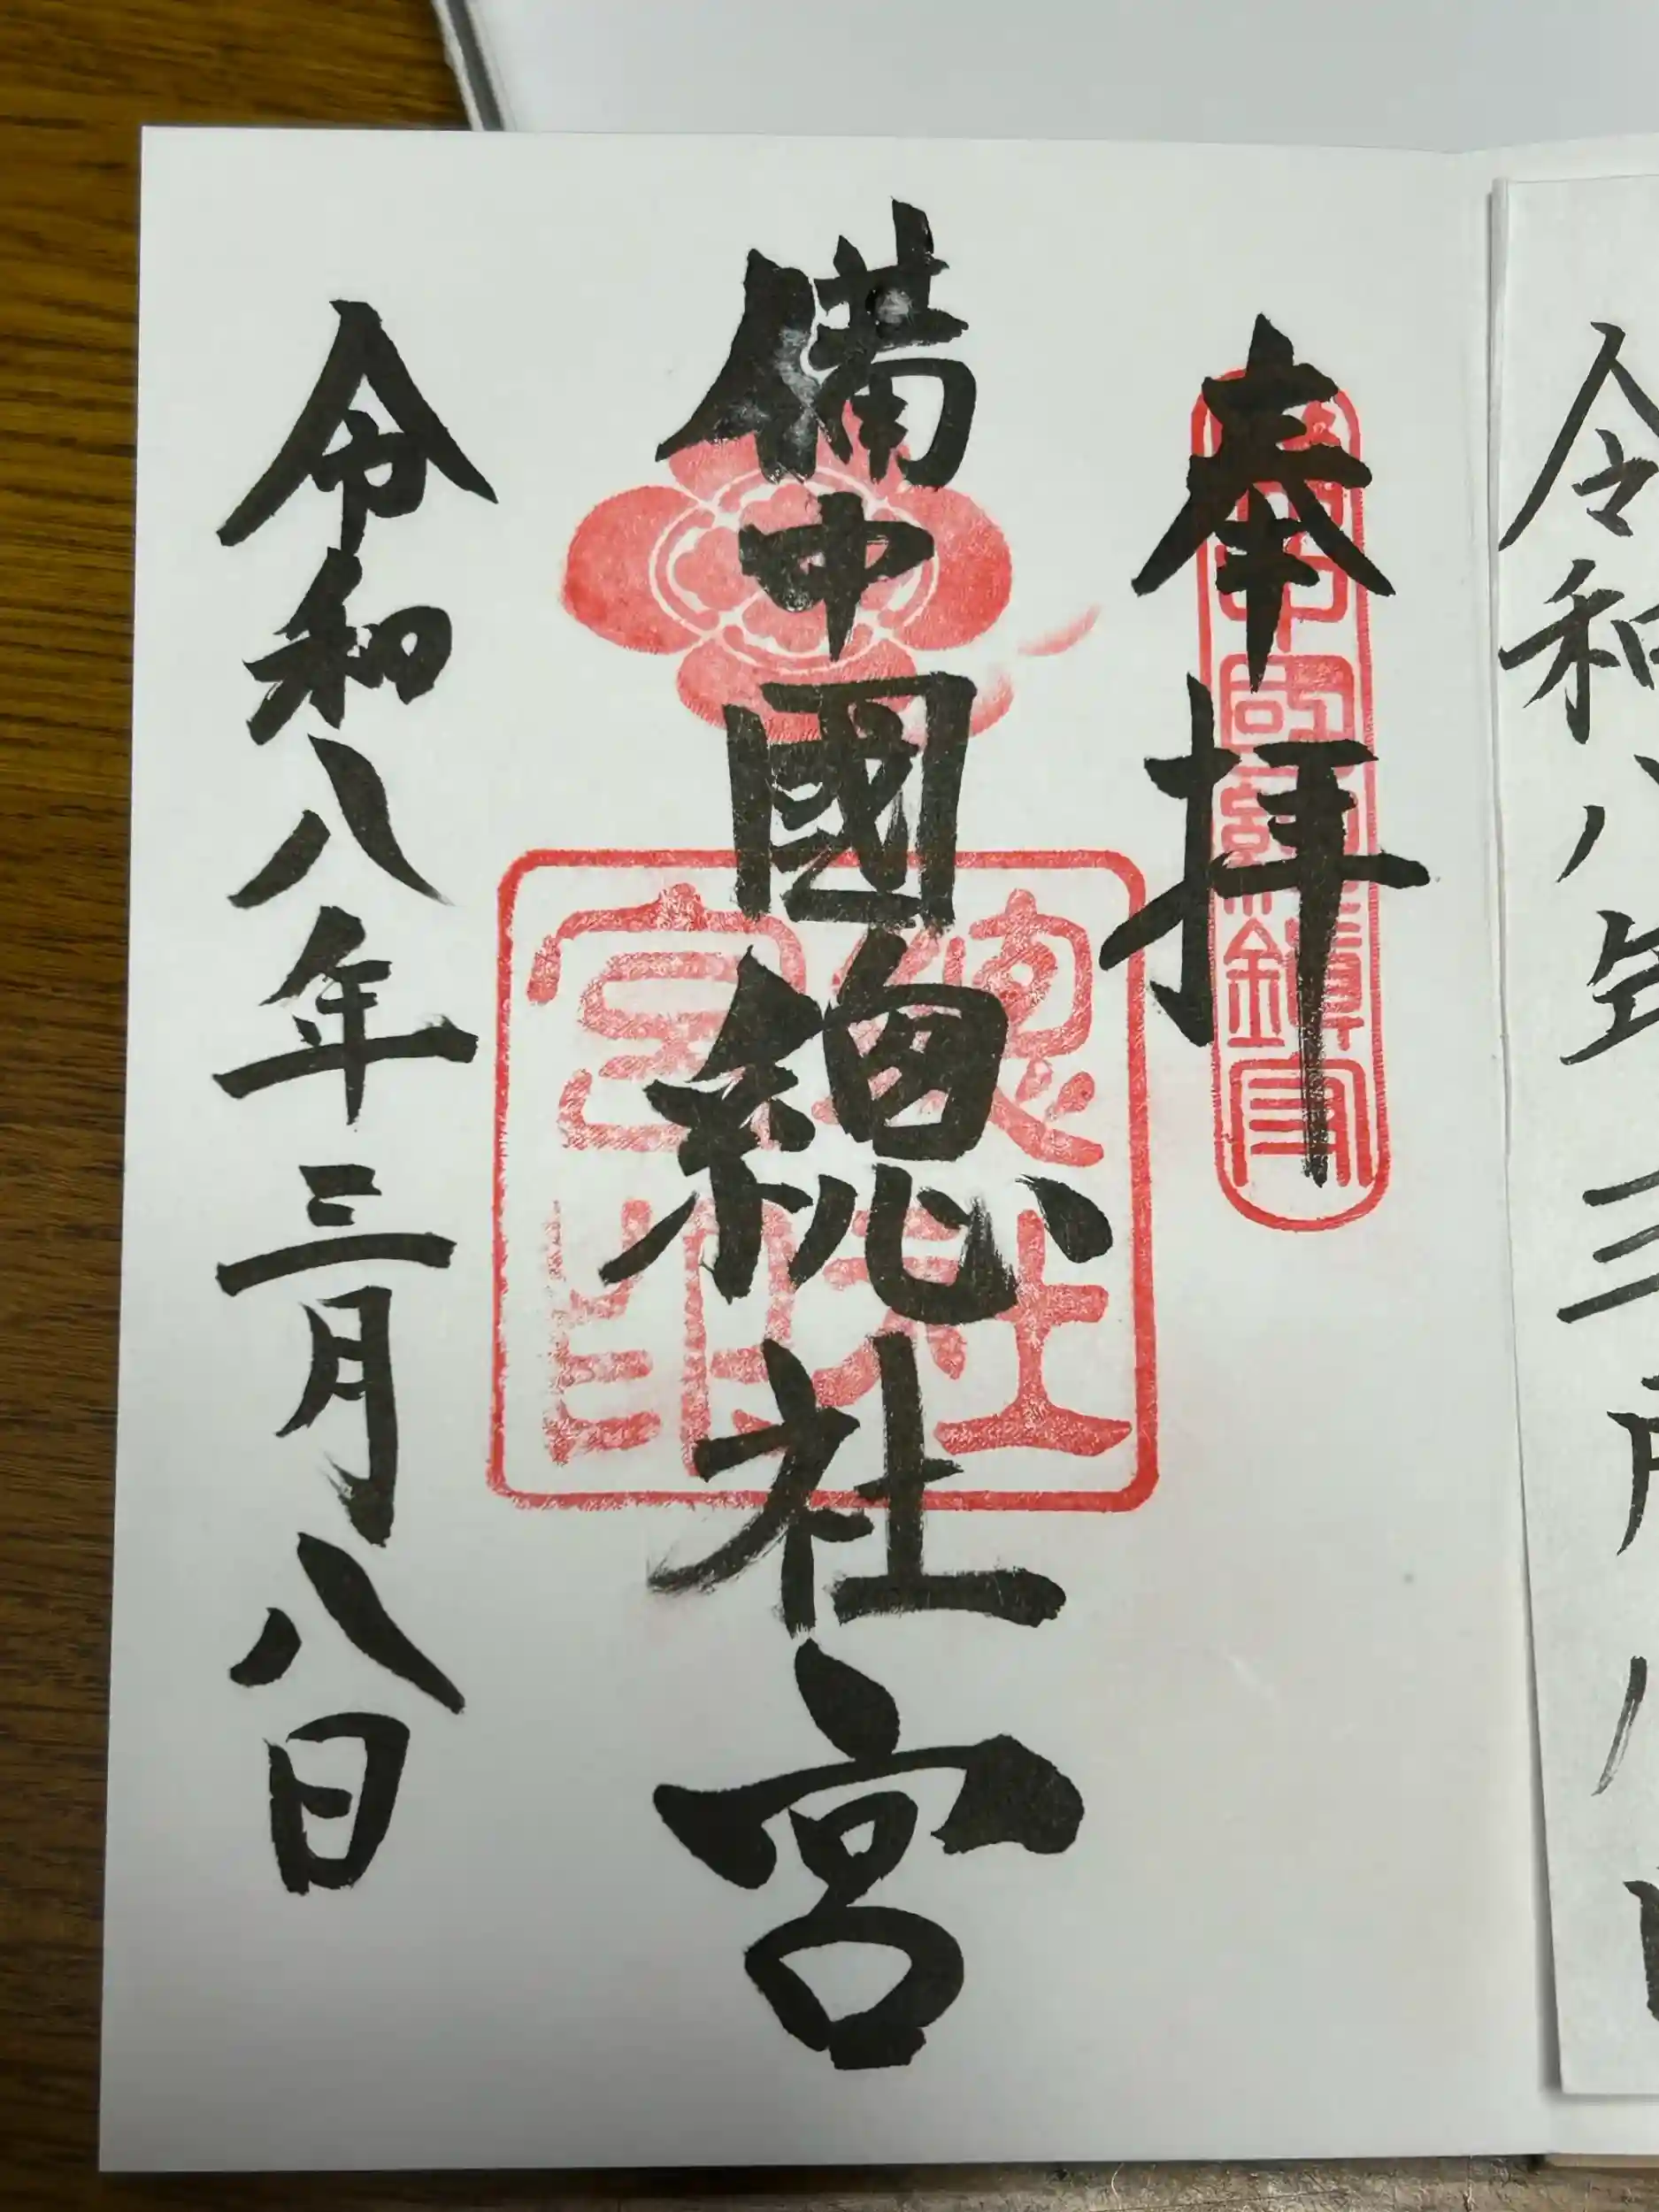 奉拝
備中國總社宮
總社宮印
令和八年三月八日
令和八年三月八日